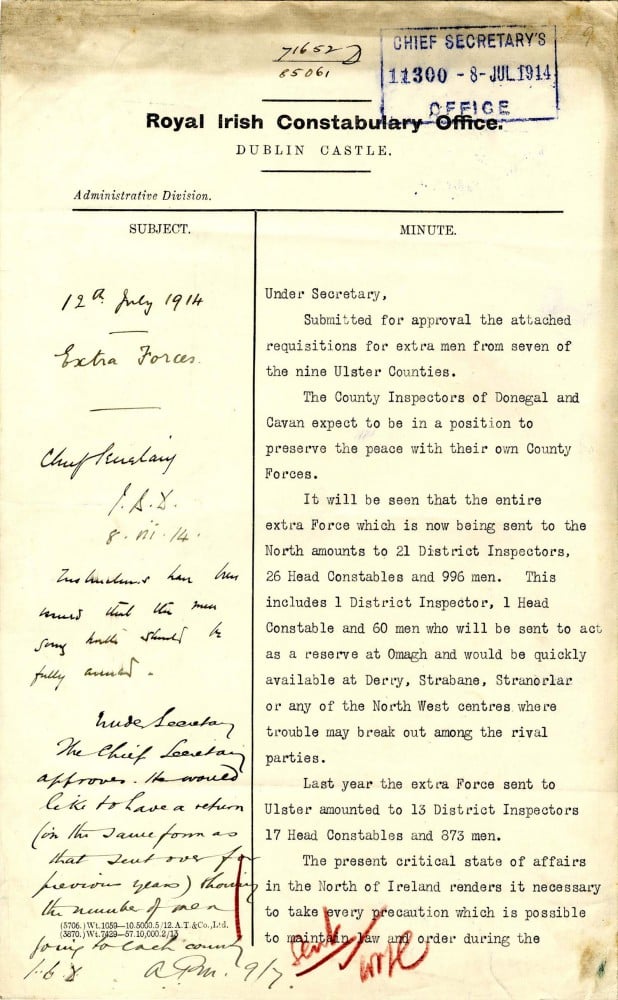 71652 D
85061
CHIEF SECRETARY'S
11300 - 8 - JUL.1914
OFFICE
Royal Irish Constabulary Office.
DUBLIN CASTLE.
Administrative Division.
SUBJECT.
12th July 1914
Extra Forces.
Chief Secretary
J.B.D.
8. vii. 14.
Instructions have been
issued that the men
going north should be
fully armed.
Under Secretary
The Chief Secretary
approves. He would
like to have a return
(in the same form as
that sent over for
previous years) showing
the number of men
(5706.)Wt.1059—10.5000.5/12.A.T.&Co.,Ltd.
(3870.)Wt.7429—57.10,000.2/13
going to each county
A.P.M. 9/7
MINUTE.
Under Secretary,
Submitted for approval the attached
requisitions for extra men from seven of
the nine Ulster Counties.
The County Inspectors of Donegal and
Cavan expect to be in a position to
preserve the peace with their own County
Forces.
It will be seen that the entire
extra Force which is now being sent to the
North amounts to 21 District Inspectors,
26 Head Constables and 996 men. This
includes 1 District Inspector, 1 Head
Constable and 60 men who will be sent to act
as a reserve at Omagh and would be quickly
available at Derry, Strabane, Stranorlar
or any of the North West centres where
trouble may break out among the rival
parties.
Last year the extra Force sent to
Ulster amounted to 13 District Inspectors
17 Head Constables and 873 men.
The present critical state of affairs
in the North of Ireland renders it necessary
to take every precaution which is possible
to maintain law and order during the
Sent